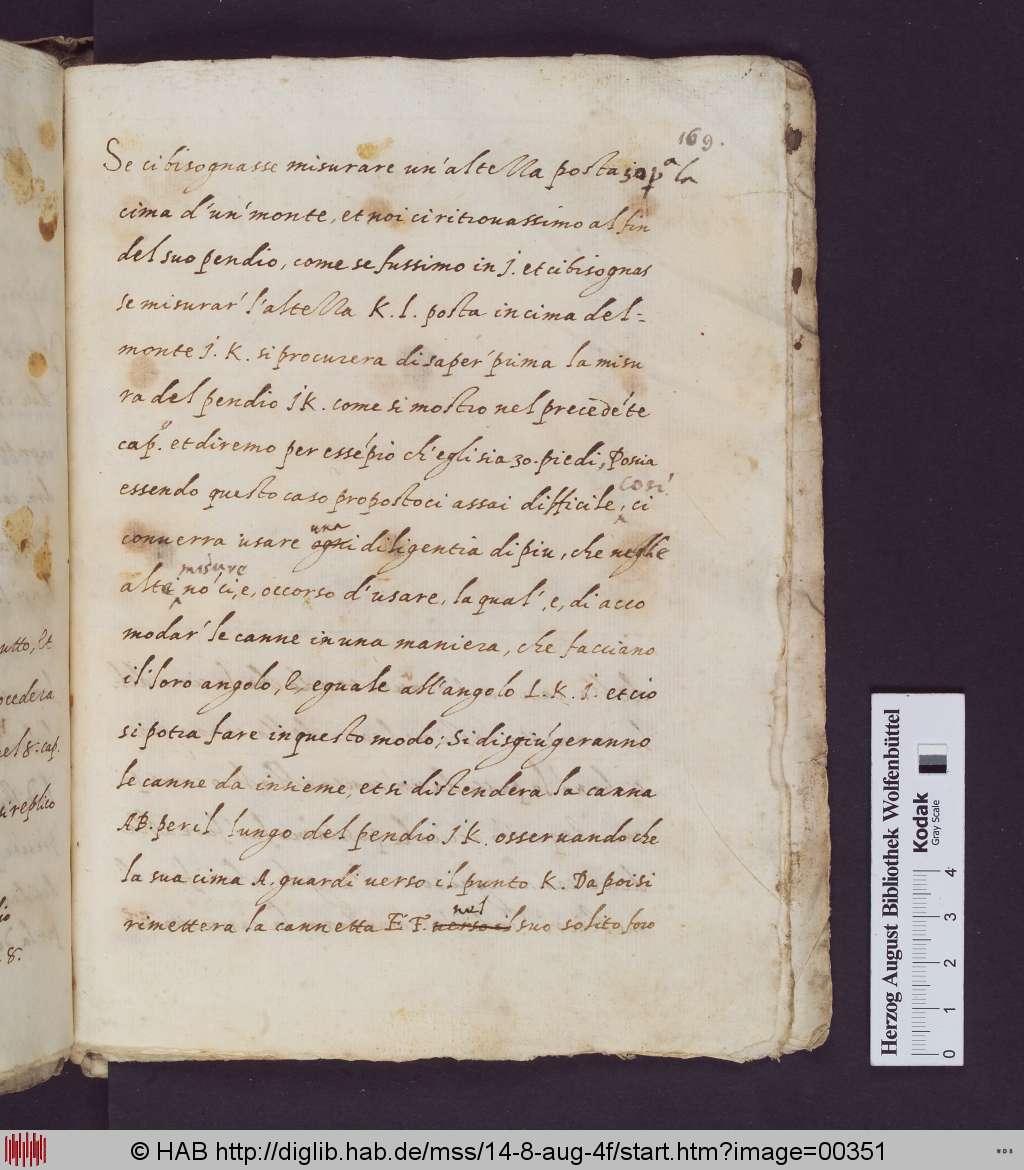 169.
Se ci bisognasse misurare un'altezza posta sopᵃ la
cima d'un'monte, et noi ci ritrouassimo al fin
del suo pendio, come se fussimo in J. et ci bisognas
se misurar' l'altezza K. L. posta in cima del=
monte J. K. si procurera di saper' prima la misu
ra del pendio JK. come si mostro nel precedẽte
capᵒ. et diremo per essẽpio ch'egli sia 30. piedi, Poscia
essendo questo caso propostoci assai difficile, così ci
conuerra usare una diligentia di piu, che neghe
altre misure nõ ci, e, occorso d'usare, la qual', e, di acco
modar' le canne in una maniera, che facciano
il'loro angolo, C, eguale all'angolo L. K. J. et cio
si potra fare in questo modo; Si disgiũgeranno
le canne da insieme, et si distendera la canna
AB. per il lungo del pendio JK. osseruando che
la sua cima A. guardi uerso il punto K. Da poi si
rimettera la cannetta E F. uerso il nel suo solito foro
utto, Et
ocedera
nel 8.° cap.
si replico
8.
Herzog August Bibliothek Wolfenbüttel
Kodak
Gray Scale
0 1 2 3 4
© HAB http://diglib.hab.de/mss/14-8-aug-4f/start.htm?image=00351